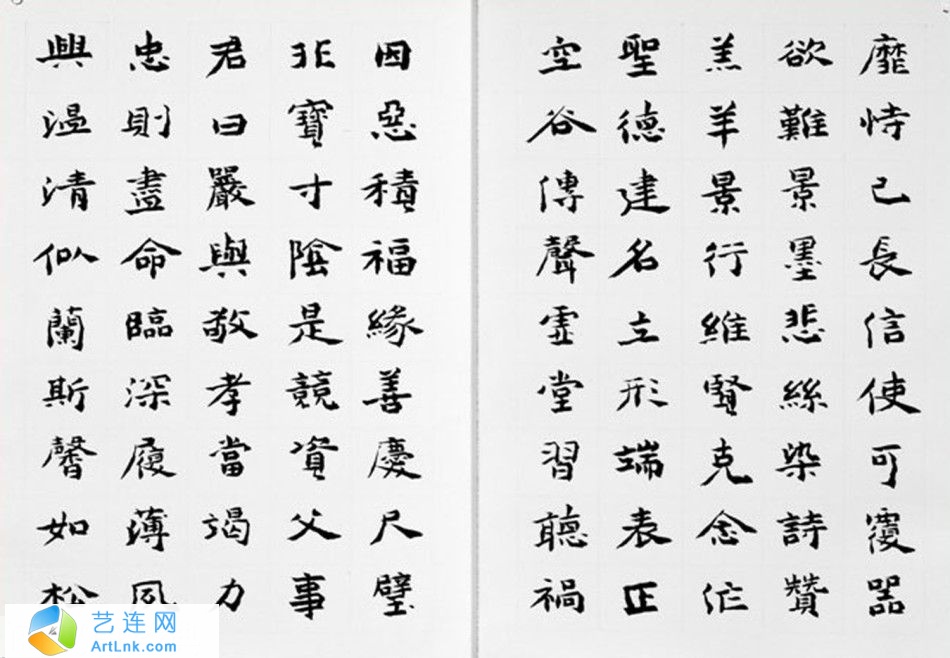 靡恃己長信使可覆器
欲難景墨悲絲染詩贊
羔羊景行維賢克念作
聖德建名立形端表正
空谷傳聲虛堂習聽禍
因惡積福緣善慶尺璧
非寶寸陰是競資父事
君曰嚴與敬孝當竭力
忠則盡命臨深履薄夙
興温清似蘭斯馨如松
艺连网
ArtLnk.com